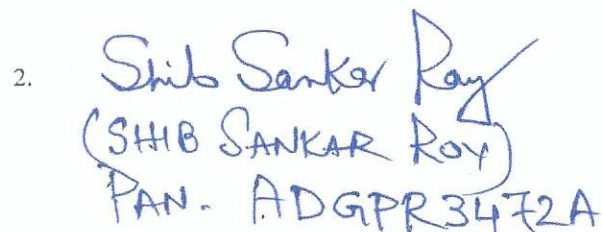 2. Shib Sankar Roy
(SHIB SANKAR ROY)
PAN. ADGPR3472A